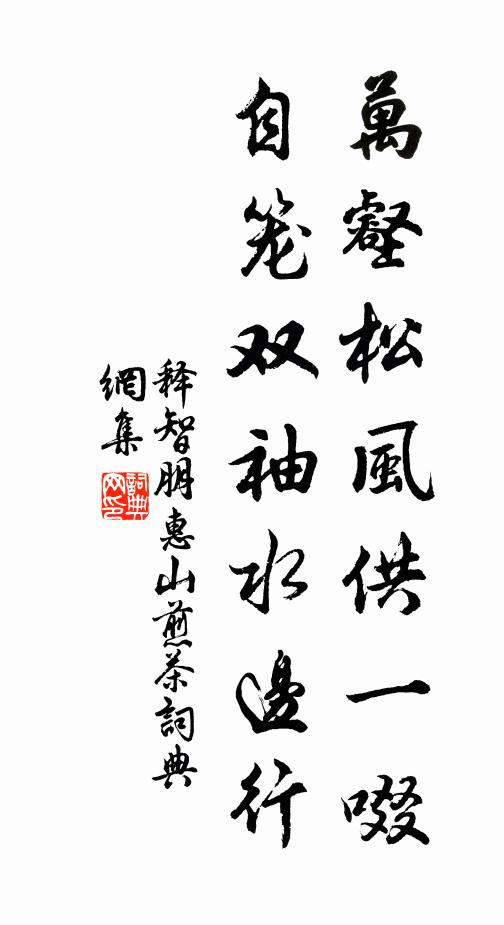 萬壑松風供一啜
自笼双袖水邊行
释智朋惠山煎茶詞典
網集
詞典
网印